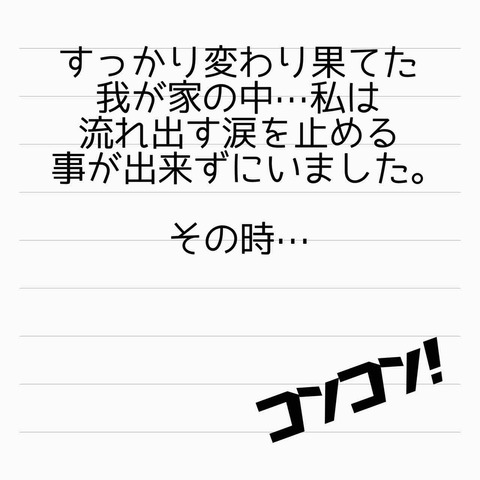 すっかり変わり果てた
我が家の中…私は
流れ出す涙を止める
事が出来ずにいました。
その時…
コンコン!